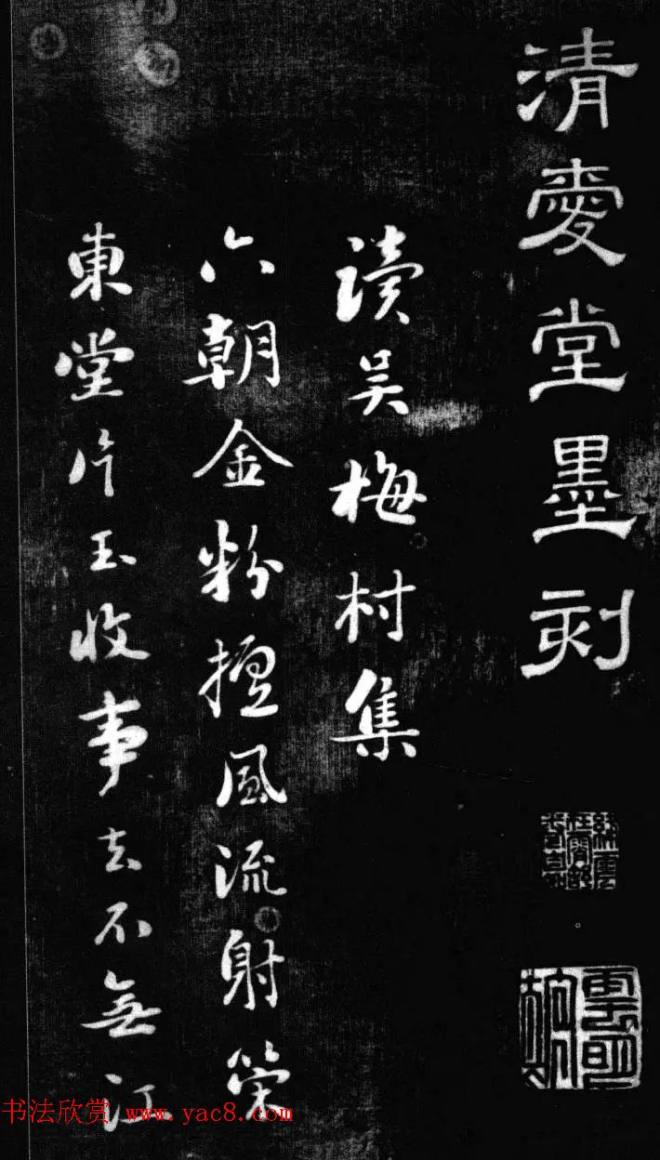 清愛堂墨刻
讀吴梅村集
六朝金粉擅風流射策
東堂片玉收事去不無江
书法欣赏 www.yac8.com